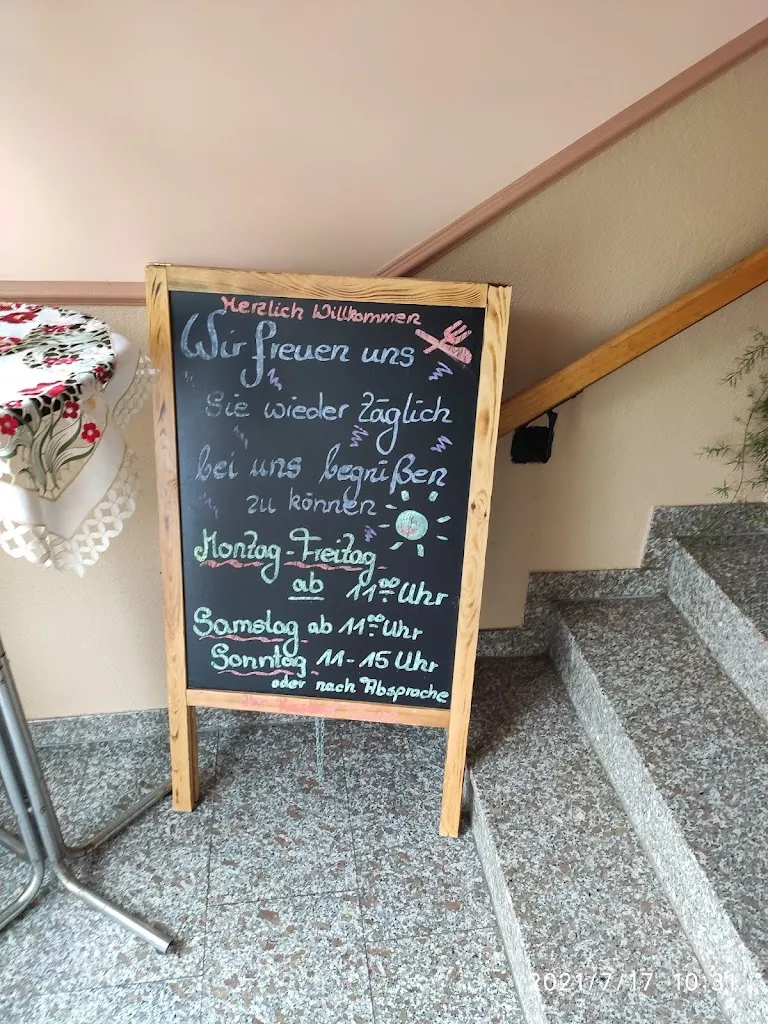 Herzlich Willkommen
Wir freuen uns
Sie wieder täglich
bei uns begrüßen
zu können
Montag - Freitag
ab 11⁰⁰ Uhr
Samstag ab 11⁰⁰ Uhr
Sonntag 11 - 15 Uhr
oder nach Absprache
2021/7/17 10:31